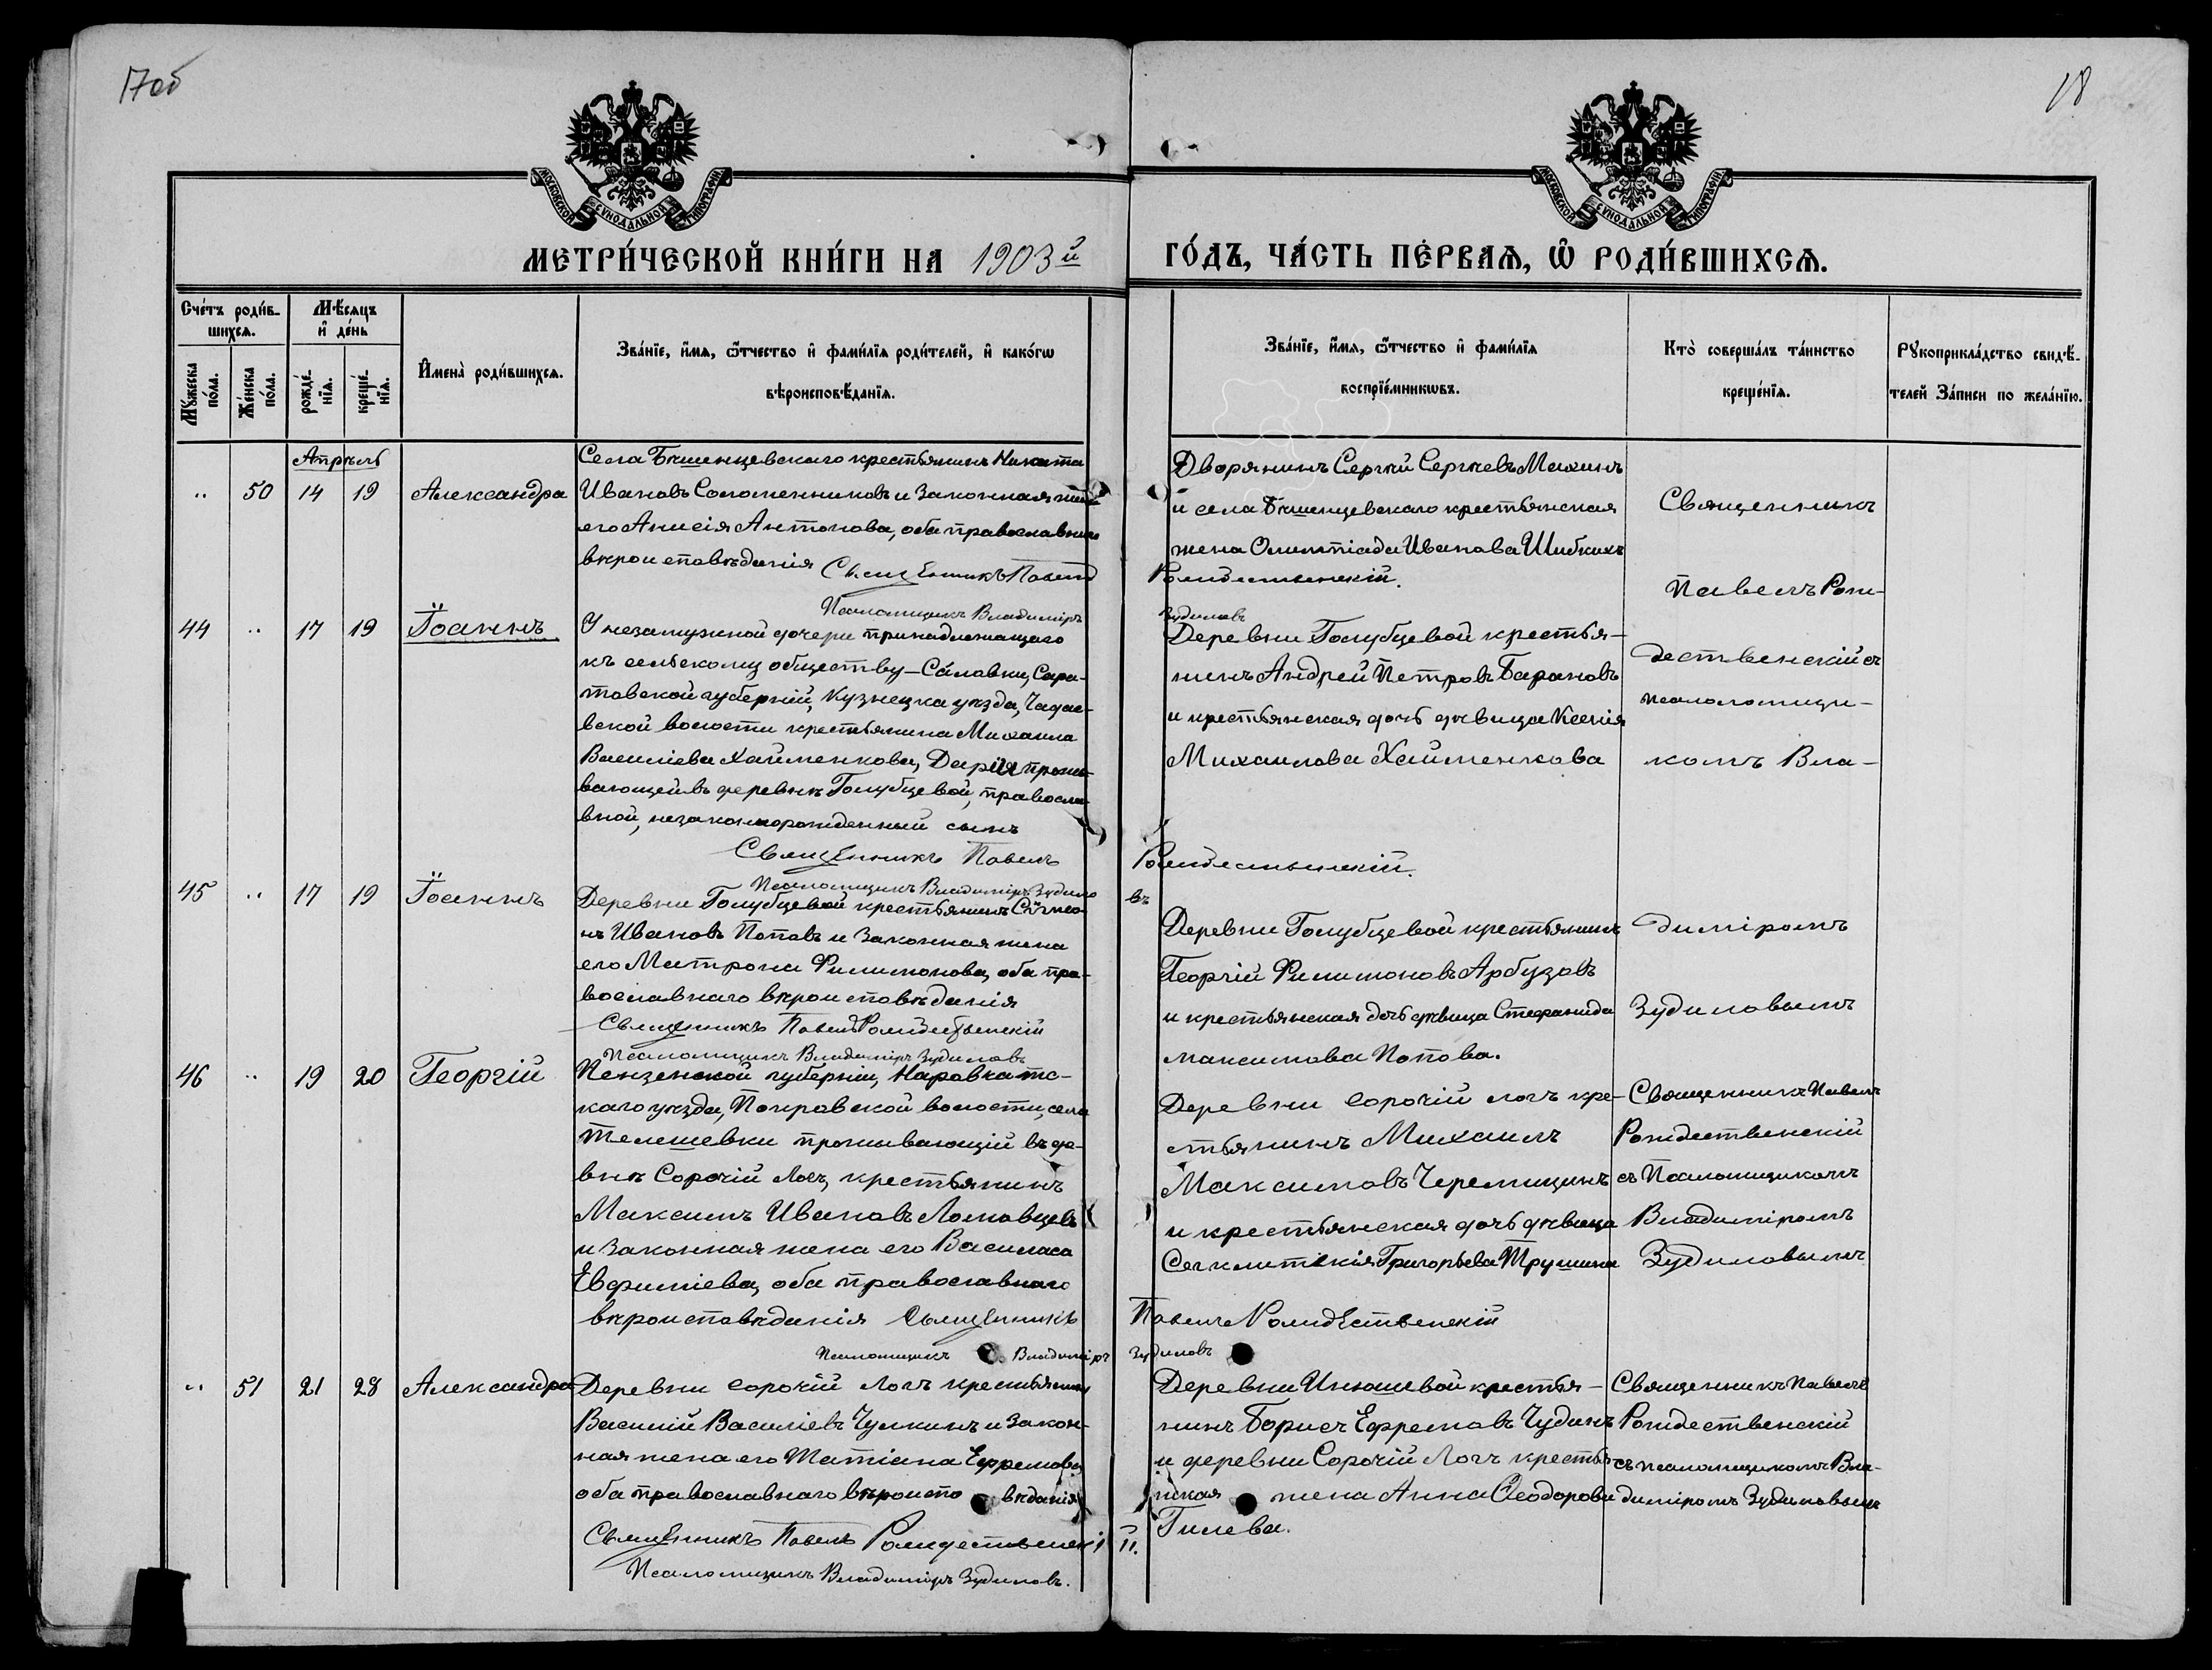 17об
18
МОСКОВСКОЙ СѴНОДАЛЬНОЙ ТИПОГРАФІИ
МОСКОВСКОЙ СѴНОДАЛЬНОЙ ТИПОГРАФІИ
МЕТРИ́ЧЕСКОЙ КНИ́ГИ НА 1903й
ГО́ДЪ, ЧА́СТЬ ПЕ́РВАѦ, Ѽ РОДИ́ВШИХСѦ.
Сче́тъ роди́в-
шихсѧ.
Мꙋ́жеска по́ла.
Же́нска по́ла.
Мѣ́сѧцъ
и҆ де́нь
рожде́-
нїѧ.
креще́-
нїѧ.
И҆мена̀ роди́вшихсѧ.
Зва́нїе, и҆́мѧ, ѻ҆́тчество и҆ фами́лїѧ роди́телей, и҆ како́гѡ
вѣроисповѣ́данїѧ.
Зва́нїе, и҆́мѧ, ѻ҆́тчество и҆ фами́лїѧ
воспрїе́мникѡвъ.
Кто̀ соверша́лъ та́инство
креще́нїѧ.
Рꙋкоприкла́дство свидѣ́-
телей За́писи по жела́нїю.
Апрѣль
„ 50 14 19 Александра
Села Бѣшенцевскаго крестьянинъ Никита
Ивановъ Соломенниковъ и законная жена
его Анисія Антонова, оба православнаго
вѣроисповѣданія Священникъ Павелъ
Рождественскій.
Псаломщикъ Владиміръ
Зудиловъ
Дворянинъ Сергѣй Сергѣевъ Махинъ
и села Бѣшенцевскаго крестьянская
жена Олимпіада Иванова Шибкихъ
Священникъ
Павелъ Рож-
дественскій съ
псаломщи-
комъ Вла-
44 „ 17 19 Іоаннъ
У незамужной дочери принадлежащаго
къ сельскому обществу - Славки, Сара-
товской губерніи, Кузнецка уѣзда, Чадае-
вской волости крестьянина Михаила
Василіева Хайменкова, Дарія прожи-
вающей въ деревнѣ Голубцевой, правосла-
вной, незаконнорожденный сынъ
Священникъ Павелъ
Рождественскій.
Псаломщикъ Владиміръ Зудило
въ
Деревни Голубцевой крестья-
нинъ Андрей Петровъ Барановъ
и крестьянская дочь дѣвица Ксенія
Михаилова Хайменкова
45 „ 17 19 Іоаннъ
Деревни Голубцевой крестьянинъ Сѵмео-
нъ Ивановъ Поповъ и законная жена
его Матрона Филимонова, оба пра-
вославнаго вѣроисповѣданія
Священникъ Павелъ Рождественскій
Псаломщикъ Владиміръ Зудиловъ
Деревни Голубцевой крестьянинъ
Георгій Филимоновъ Арбузовъ
и крестьянская дочь дѣвица Стефанида
Максимова Попова.
диміромъ
Зудиловымъ
46 „ 19 20 Георгій
Пензенской губерніи, Наровкатс-
каго уѣзда, Покровской волости, села
Телешевки проживающій въ де-
внѣ Сорочій Логъ, крестьянинъ
Максимъ Ивановъ Ломовцевъ
и законная жена его Василиса
Евфиміева, оба православнаго
вѣроисповѣданія Священникъ
Павелъ Рождественскій
Псаломщикъ Владиміръ Зудиловъ
Деревни Сорочій логъ кре-
стьянинъ Михаилъ
Максимовъ Черемицинъ
и крестьянская дочь дѣвица
Сигклитикія Григорьева Трушина
Священникъ Павелъ
Рождественскій
съ Псаломщикомъ
Владиміромъ
Зудиловымъ
„ 51 21 28 Александра
Деревни Сорочій логъ крестьянинъ
Василій Василіевъ Чулкинъ и закон-
ная жена его Татіана Ефремова,
оба православнаго вѣроиспо вѣданія
Священникъ Павелъ Рождественскій.
Псаломщикъ Владиміръ Зудиловъ.
Деревни Инюшевой крестья-
нинъ Борисъ Ефремовъ Чудинъ
и деревни Сорочій Логъ кресть-
янская жена Анна Ѳеодорова
Гилева.
Священникъ Павелъ
Рождественскій
съ псаломщикомъ Вла-
диміромъ Зудиловымъ